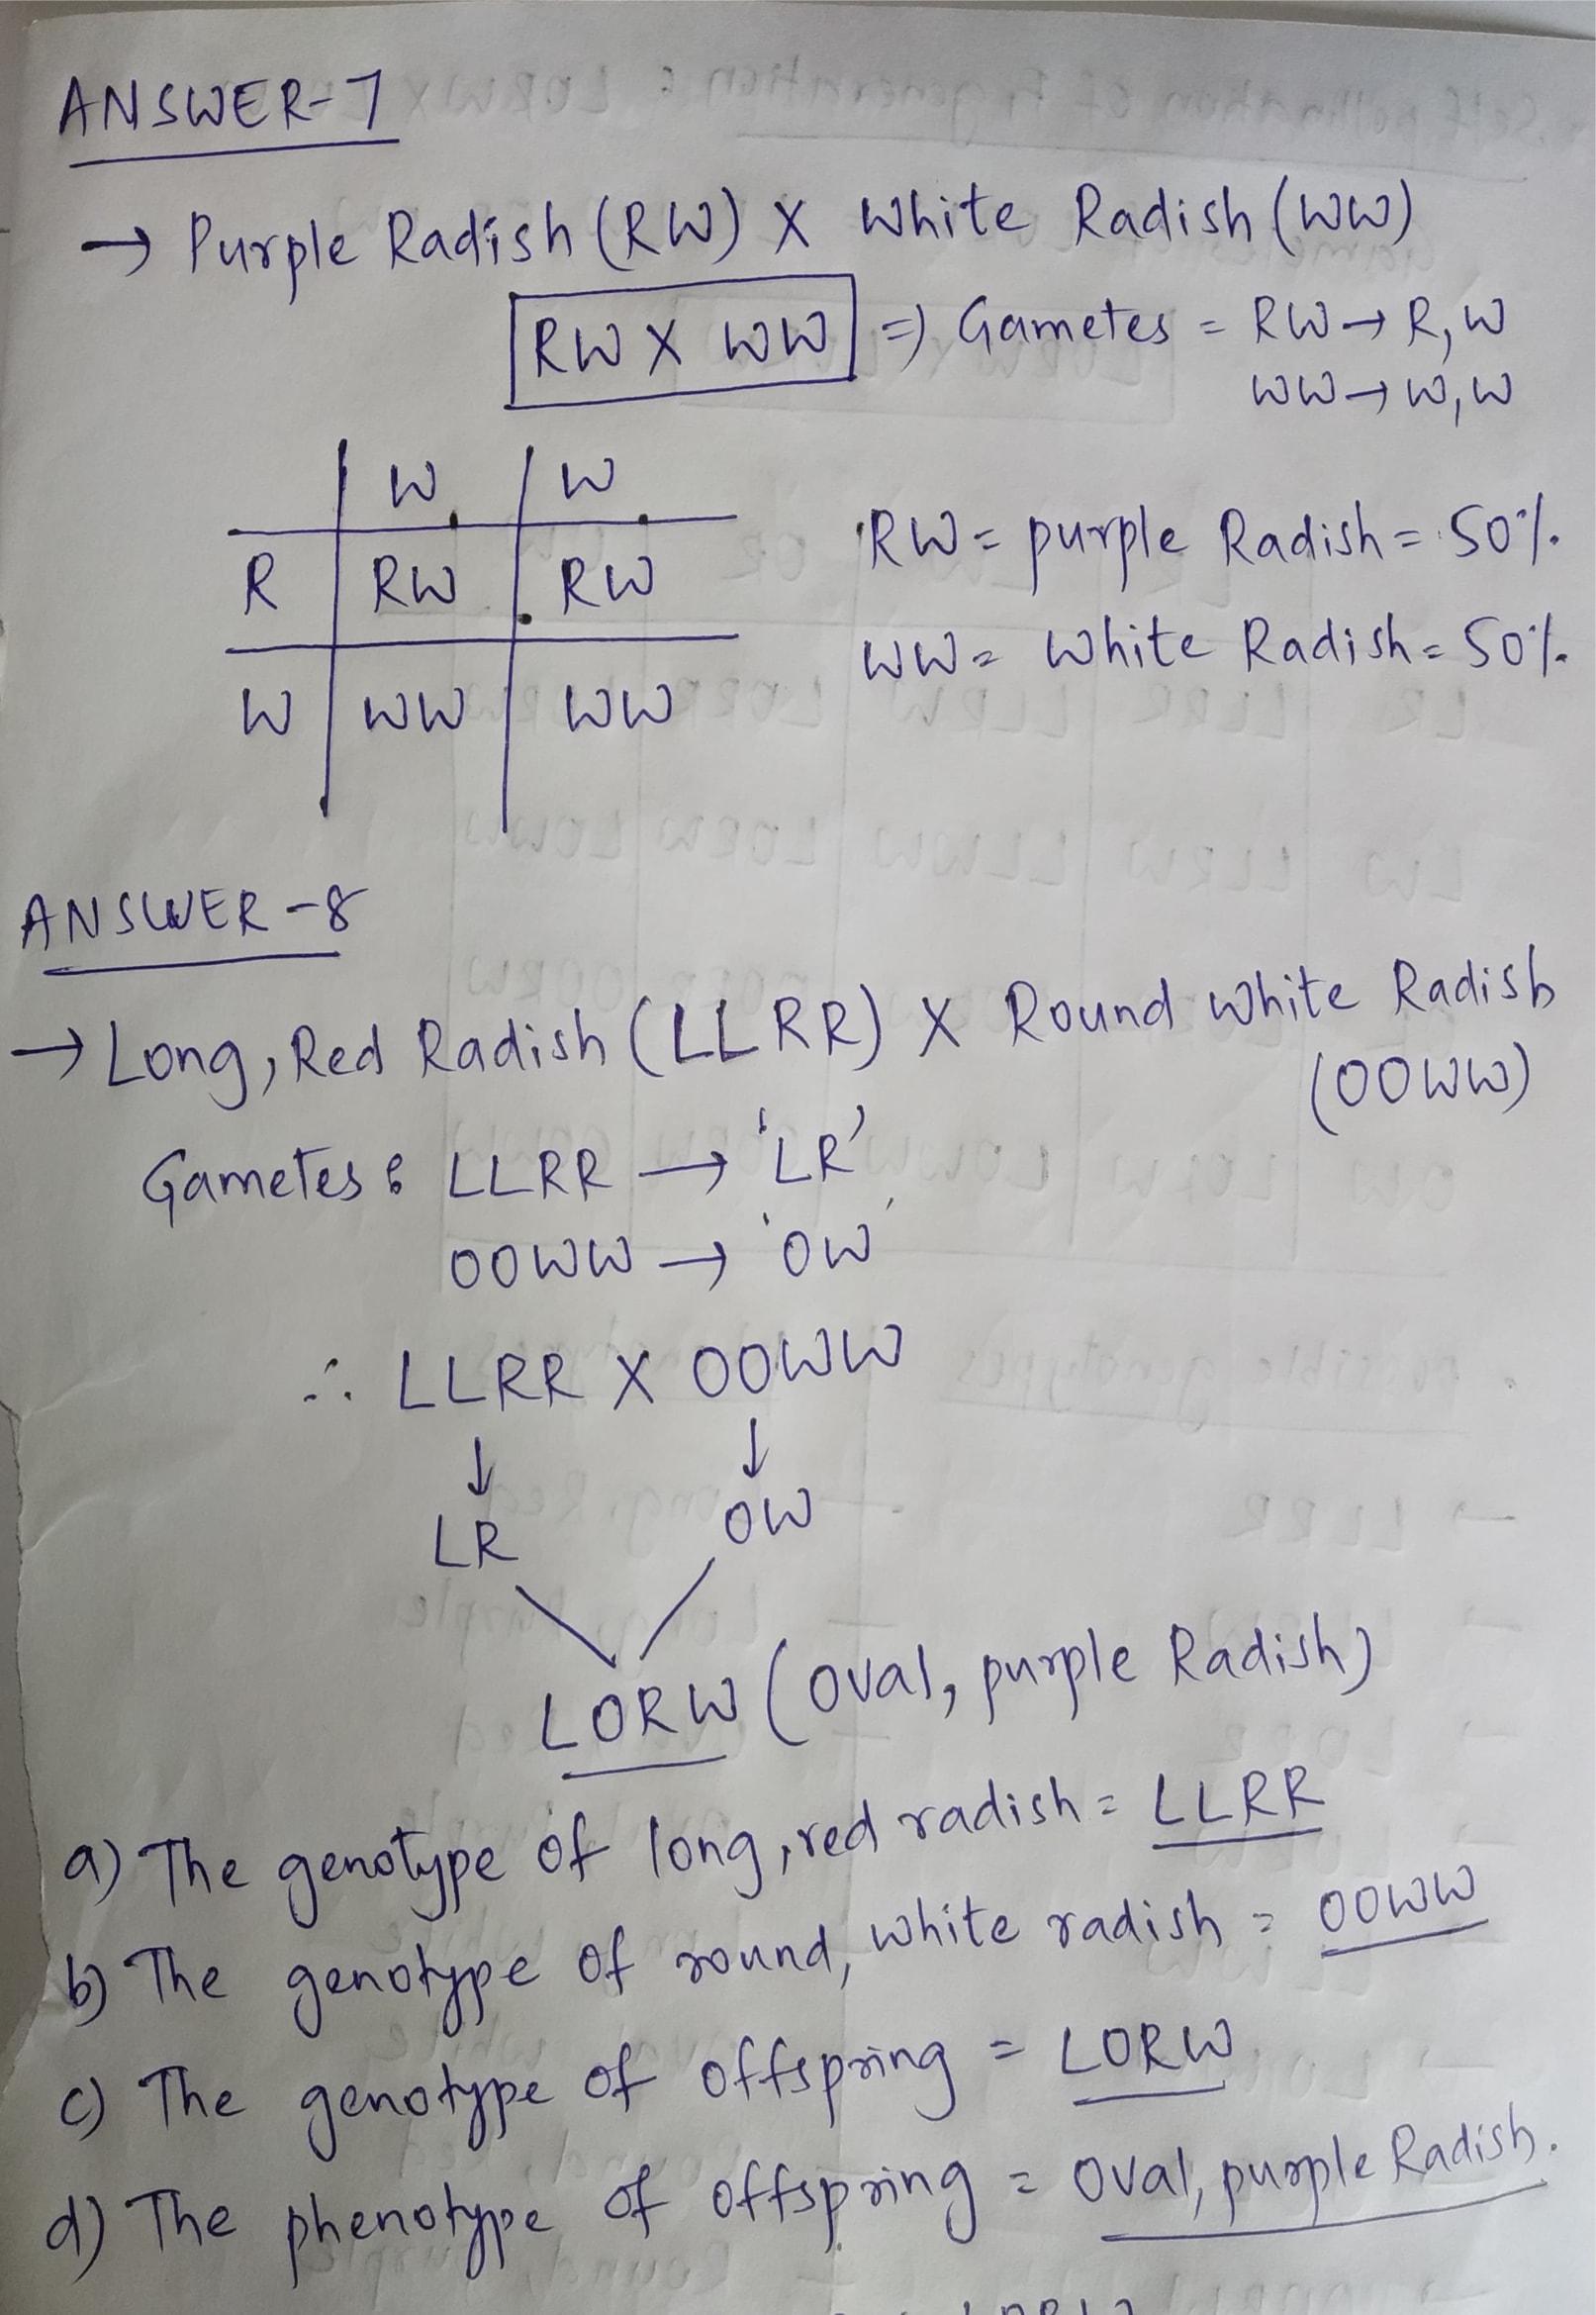 ANSWER-7
→ Purple Radish (RW) X White Radish (WW)
RW X WW => Gametes = RW → R, W
WW → W, W
W W
R RW RW
W WW WW
RW = purple Radish = 50%.
WW = White Radish = 50%.
ANSWER-8
→ Long, Red Radish (LLRR) X Round White Radish
(OOWW)
Gametes : LLRR → 'LR'
OOWW → 'OW'
∴ LLRR X OOWW
↓ ↓
LR OW
LORW (oval, purple Radish)
a) The genotype of long, red radish = LLRR
b) The genotype of round, white radish = OOWW
c) The genotype of offspring = LORW
d) The phenotype of offspring = Oval, purple Radish.